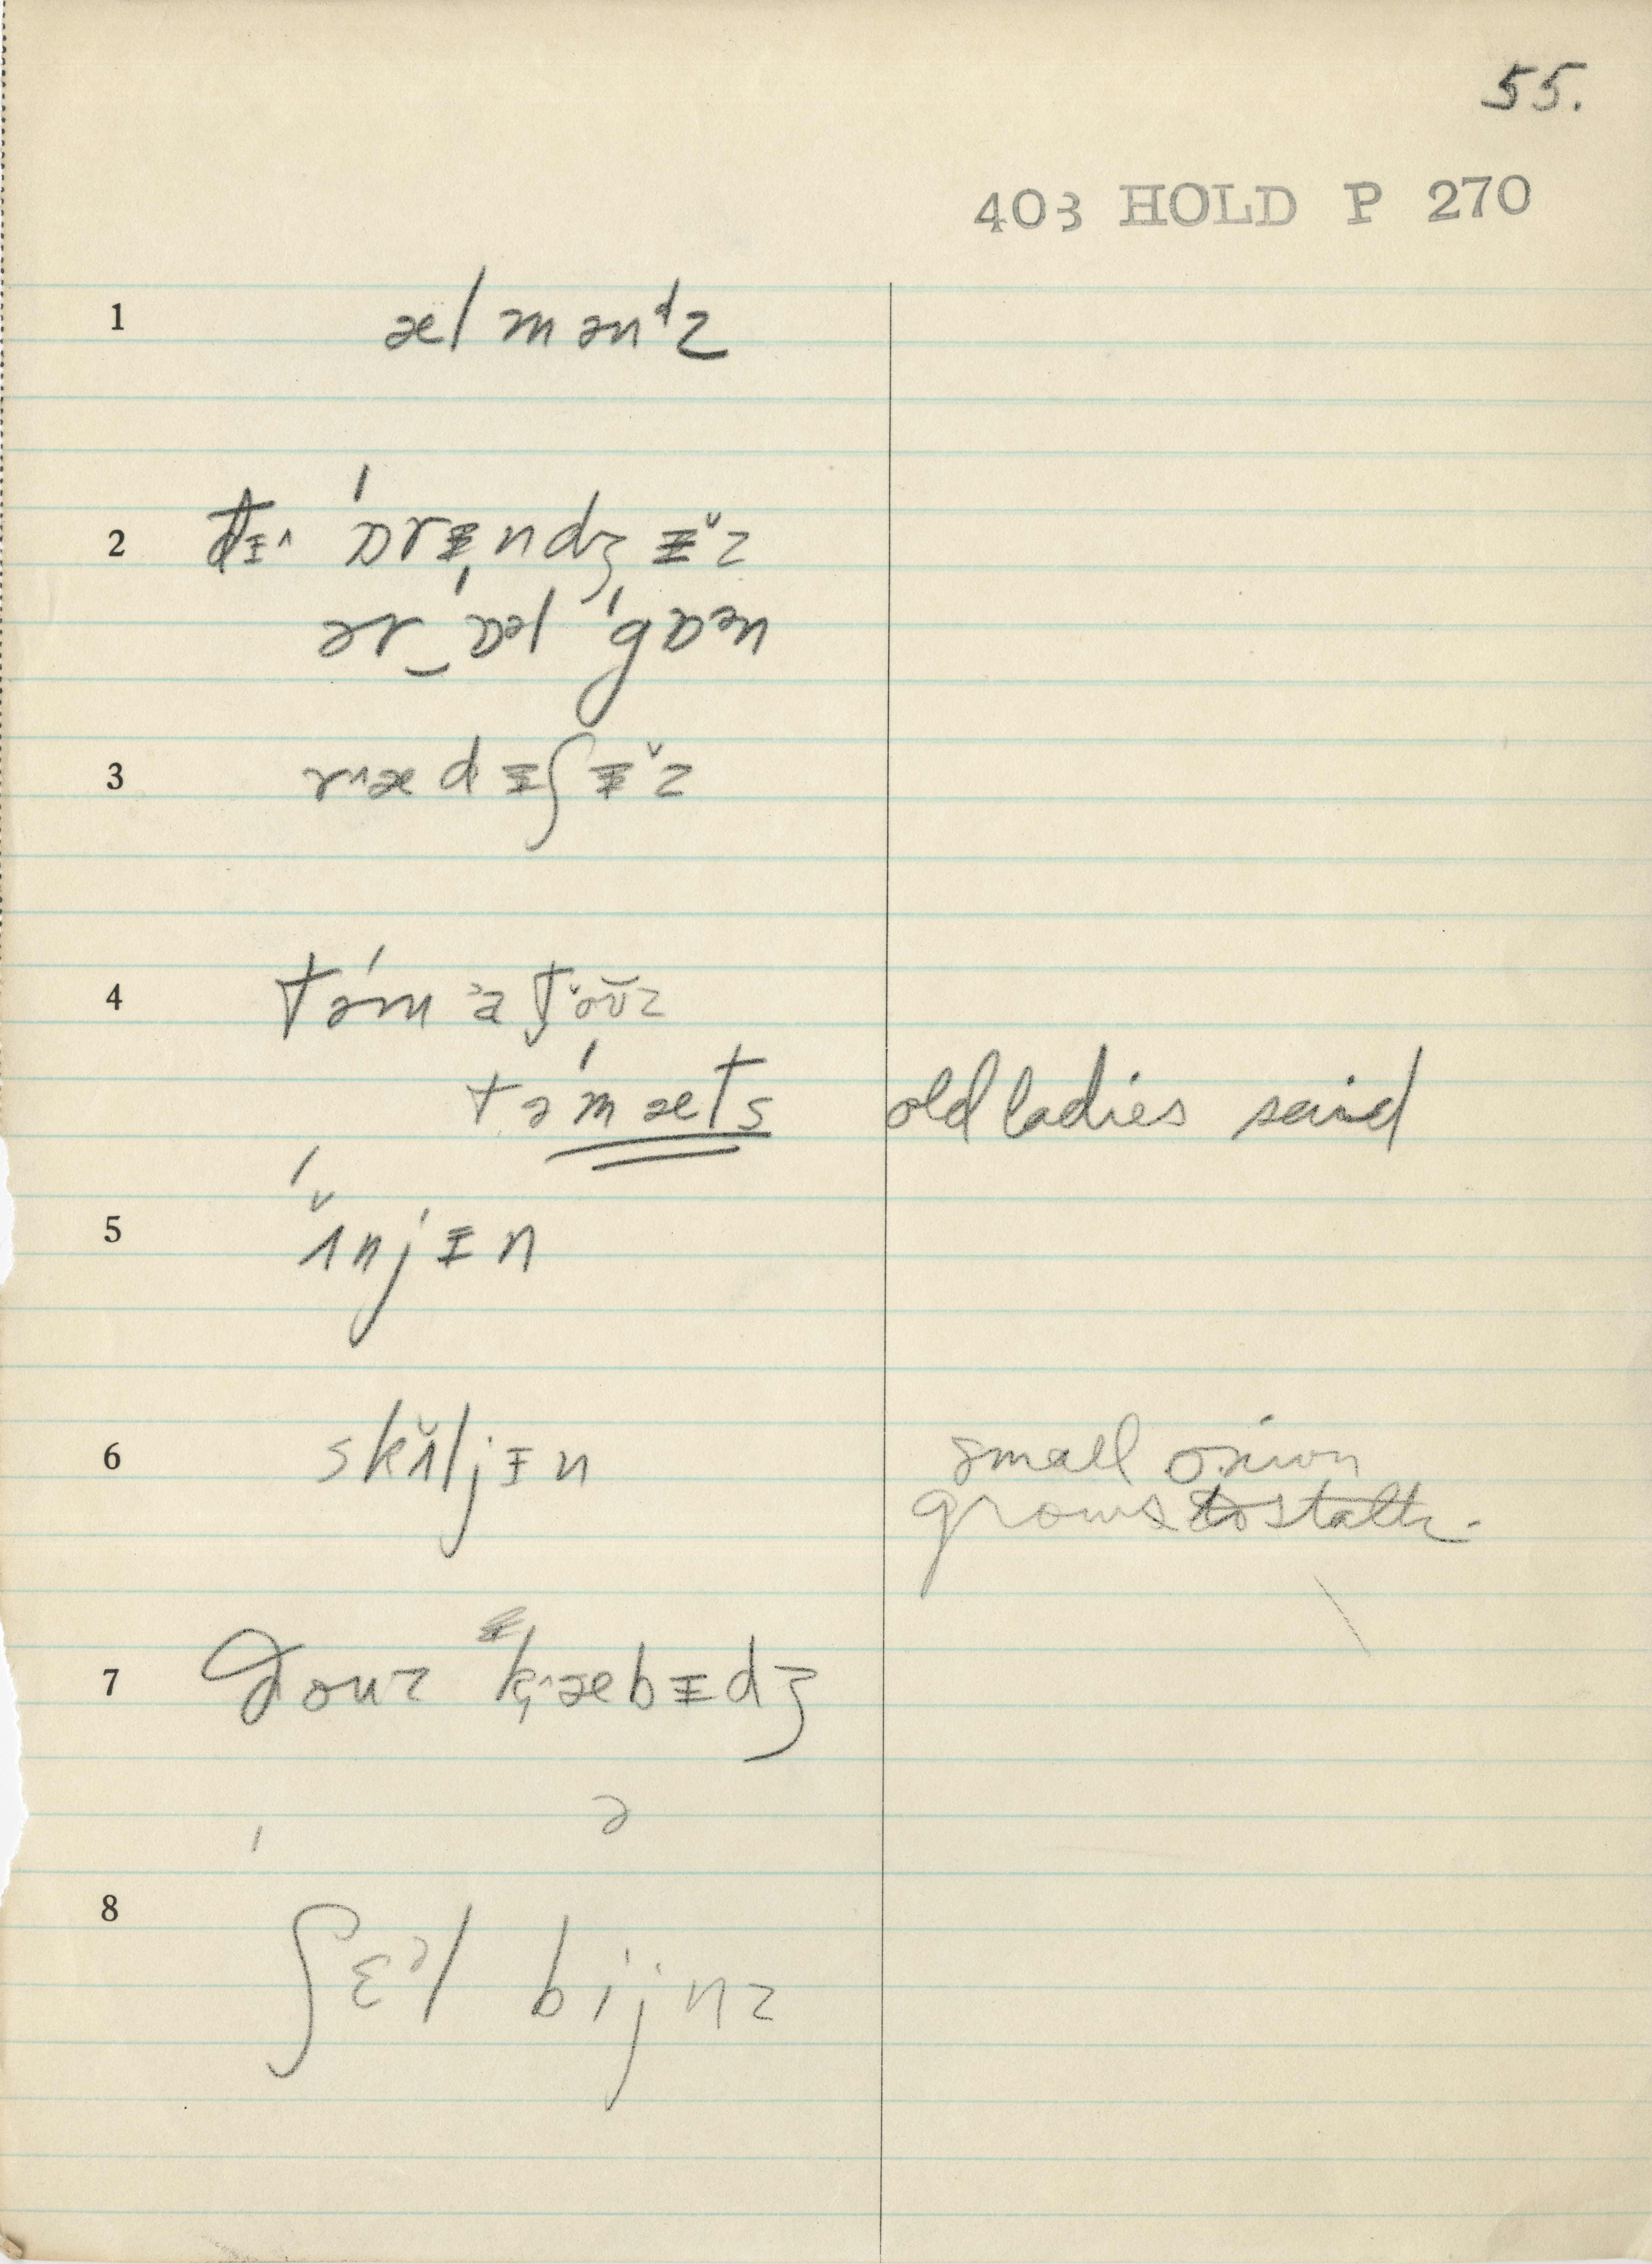 55.
403 HOLD P 270
1 ælmənᵈz
2 ðɪ˄ ˈɒrɪndʒɪ̌z
ər‿ˈɒᵊl ˈgɒᵊn
3 r˄ædɪʃɪ̌z
4 təˈmətoʊ̆z
təˈmæts old ladies said
5 ˈʌ̌njɪn
6 skʌ̌ljɪn small onion
grows to stalk.
7 ðoʊz k̟˄æbɪdʒ
ə
8 ʃɛᵊl bijnz